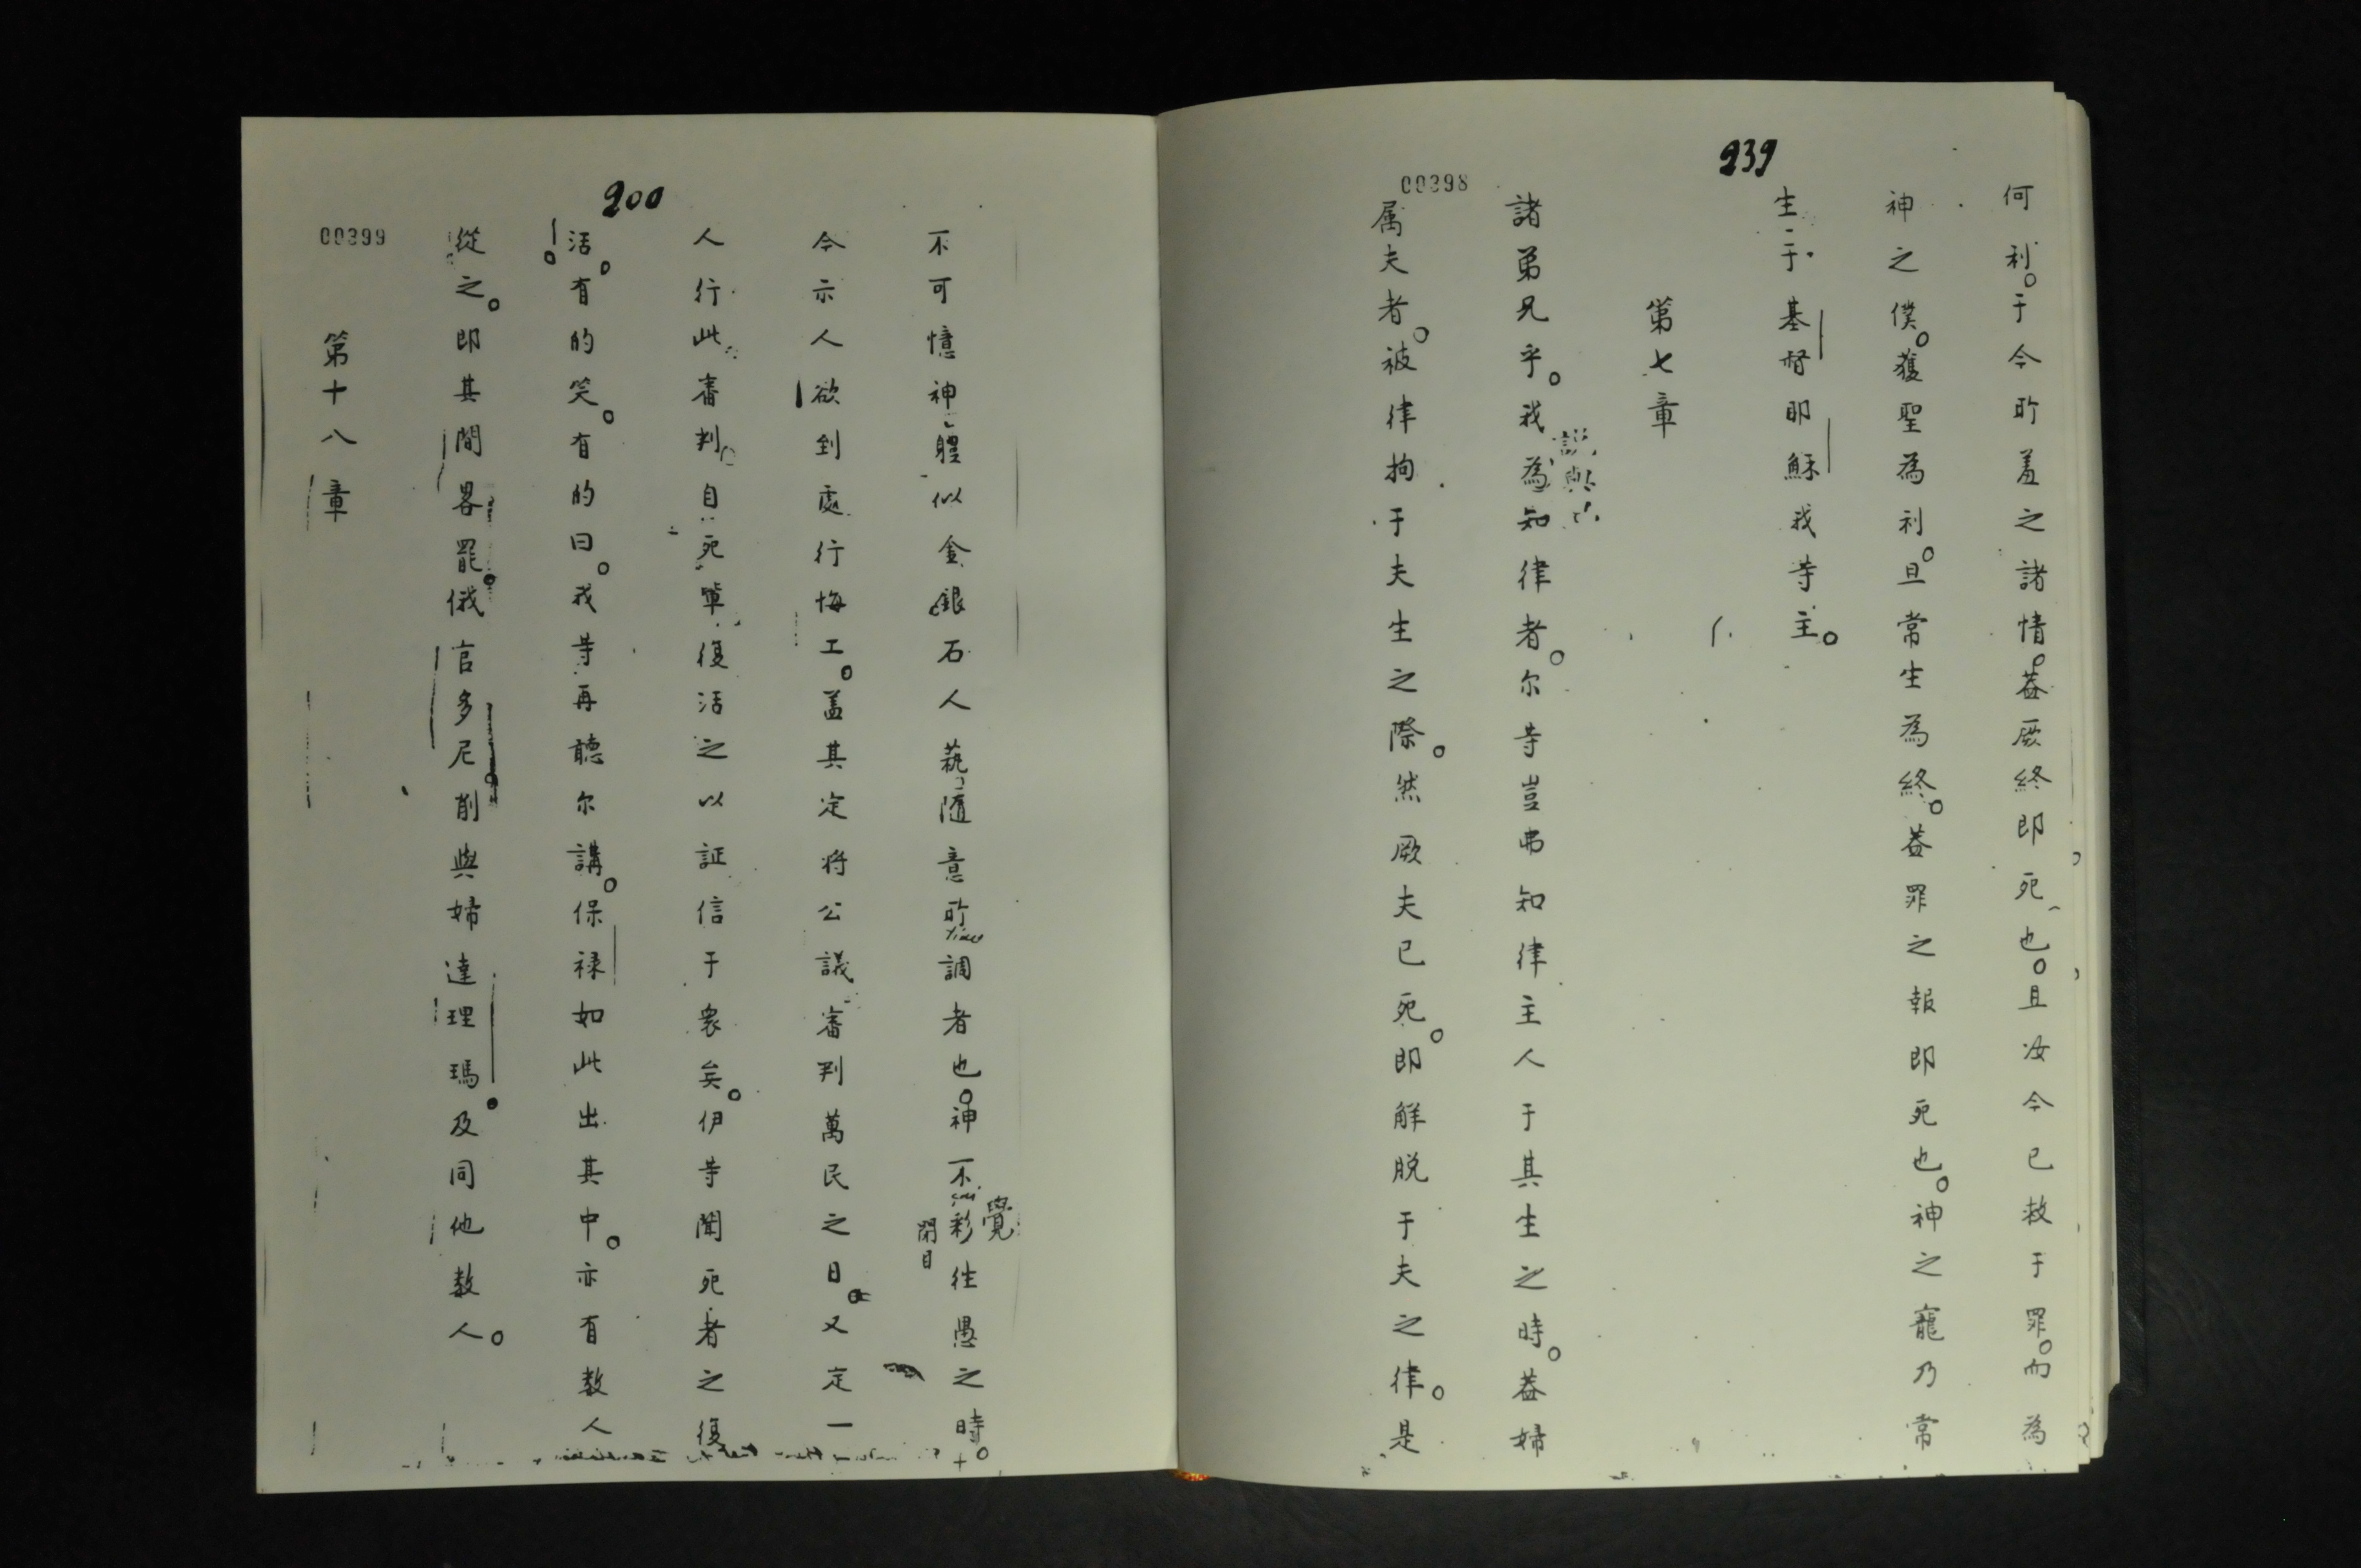 239
00398
何利。于今所羞之諸情。葢厥終即死也。且汝今已救于罪。而為
神之僕。獲聖為利。且常生為終。葢罪之報即死也。神之寵乃常
生于基督耶穌我等主。
第七章
諸弟兄乎。我為知律者。尔等豈弗知律主人于其生之時。葢婦
属夫者。被律拘于夫生之際。然厥夫已死。即觧脱于夫之律。是
200
00399
不可憶神體似金銀石人藝隨意所調者也。神不彩往愚之時。
覺
閉目
今示人欲到處行悔工。盖其定将公議審判萬民之日。又定一
人行此審判。自死軰復活之以証信于衆矣。伊等聞死者之復
活。有的笑。有的曰。我等再聽尔講。保禄如此出其中。亦有数人
從之。即其間畧罷俄官多尼削與婦達理瑪。及同他数人。
第十八章